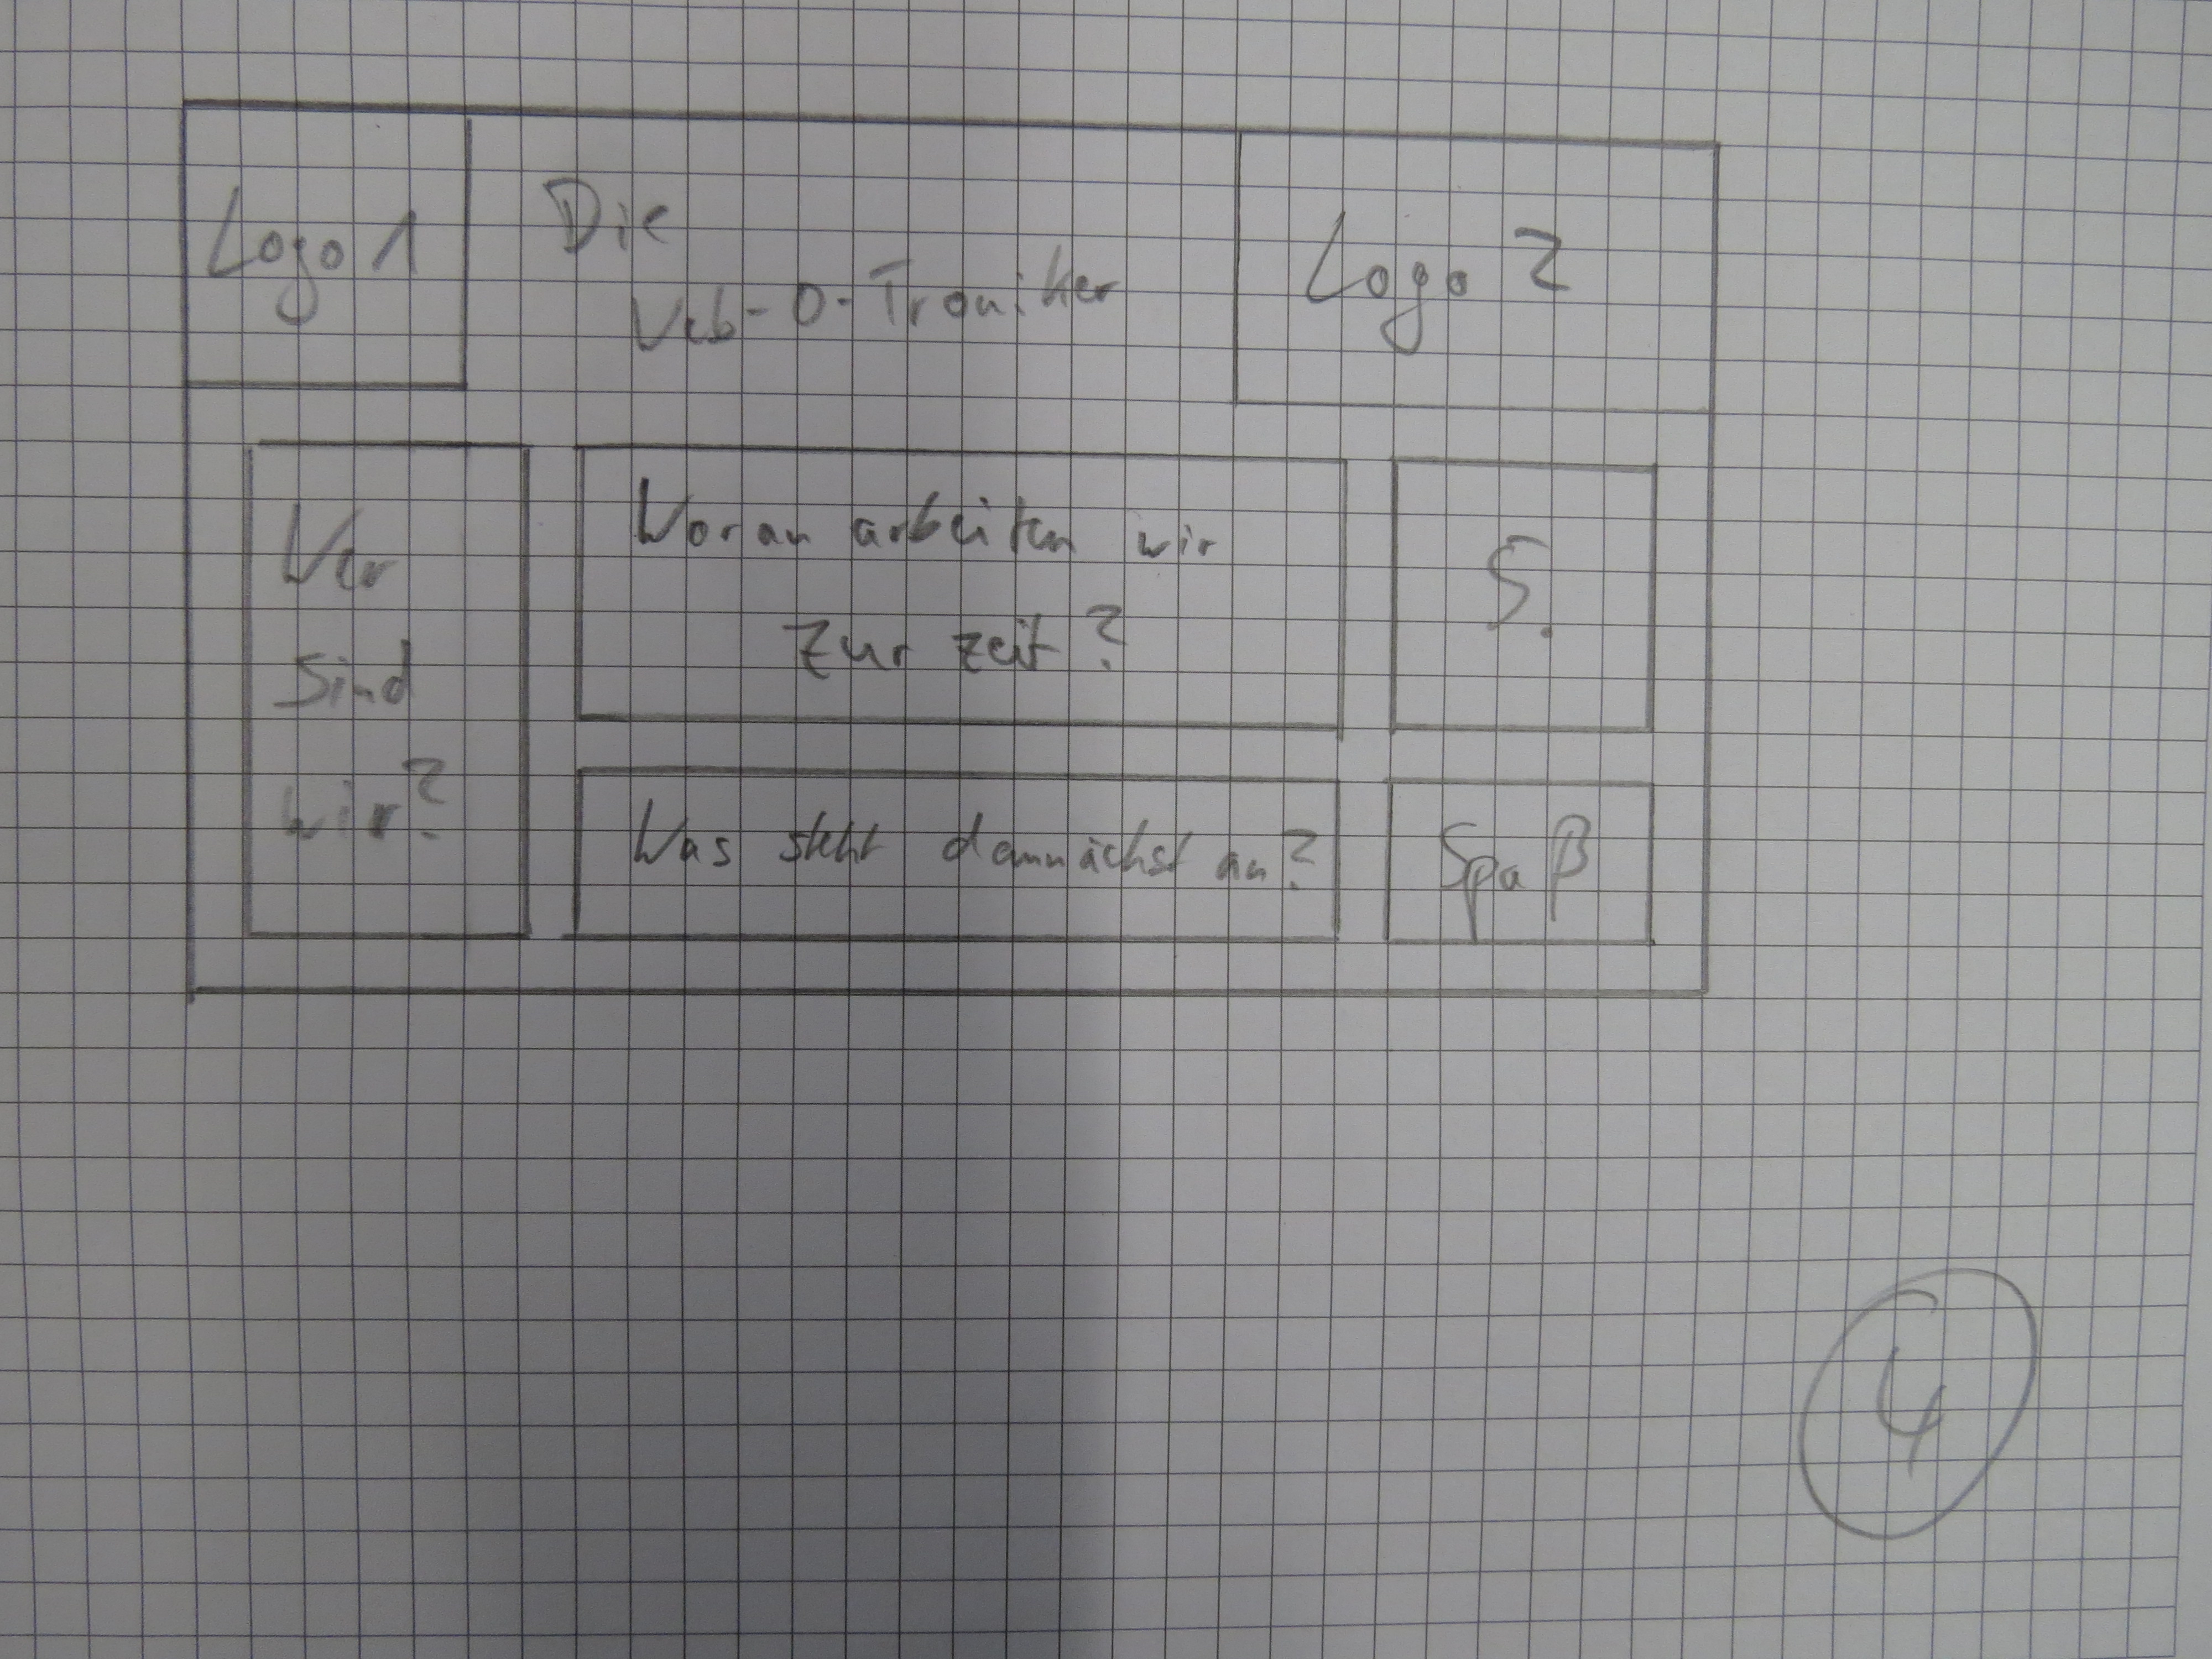 Logo 1
Die
Web-O-Troniker
Logo 2
Wer
sind
wir?
Woran arbeiten wir
zur zeit?
S.
Was steht demnächst an?
Spaß
4